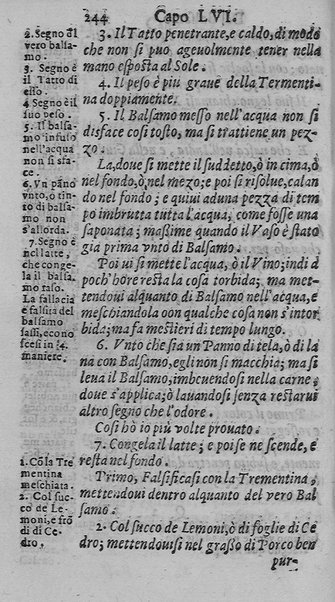 244 Capo LVI.
2. Segno dl
vero balsa-
mo.
3. Segno è
il Tatto di
esso.
4 Segno è il
suo peso.
5. Il balsa-
mo infuso
nell'acqua
non si sfa-
ce.
6. Vn pāno
vnto, ò tin-
to di balsa-
mo non
s'allorda.
7. Segno è
nel latte,
che conge-
la il balsa-
mo raso.
La fallacia
e falsità del
balsamo
fassi, e cono
scesi in 4.
maniere.
1. Cōla Tre
mentina
meschiata.
2. Col suc-
co de Le-
moni, e frō
di di Ce-
dro.
3. Il Tatto penetrante, e caldo, di modo
che non si può ageuolmente tener nella
mano esposta al Sole.
4. Il peso è più graue della Termenti-
na doppiamente.
5. Il Balsamo messo nell'acqua non si
disface così tosto, ma si trattiene un pez-
zo.
La, doue si mette il suddetto, ò in cima, ò
nel fondo, ò, nel mezo; e poi si risolue, calan
do nel fondo; e quiui aduna pezza di tem
po imbrutta tutta l'acqua, come fosse una
saponata; maßime quando il Vaso è stato
gia prima vnto di Balsamo.
Poi ui si mette l'acqua, ò il Vino; indi à
poch'hore resta la cosa torbida; ma met-
tendoui alquanto di Balsamo nell'acqua, e
meschiandola con qualche cosa non s'intor
bida; ma fa mestieri di tempo lungo.
6. Vnto che sia un Panno di tela, ò di la
na con Balsamo, egli non si macchia; ma si
leua il Balsamo, imbeuendosi nella carne,
doue s'applica; ò lauandosi senza restarui
altro segno che l'odore.
Così hò io più volte prouato.
7. Congela il latte; e poi se ne scende, e
resta nel fondo.
Primo, Falsificasi con la Trementina,
mettendoui dentro alquanto del vero Bal
samo.
2. Col succo de Lemoni, ò di foglie di Ce
dro; mettendouisi nel grasso di Porco ben
pur-